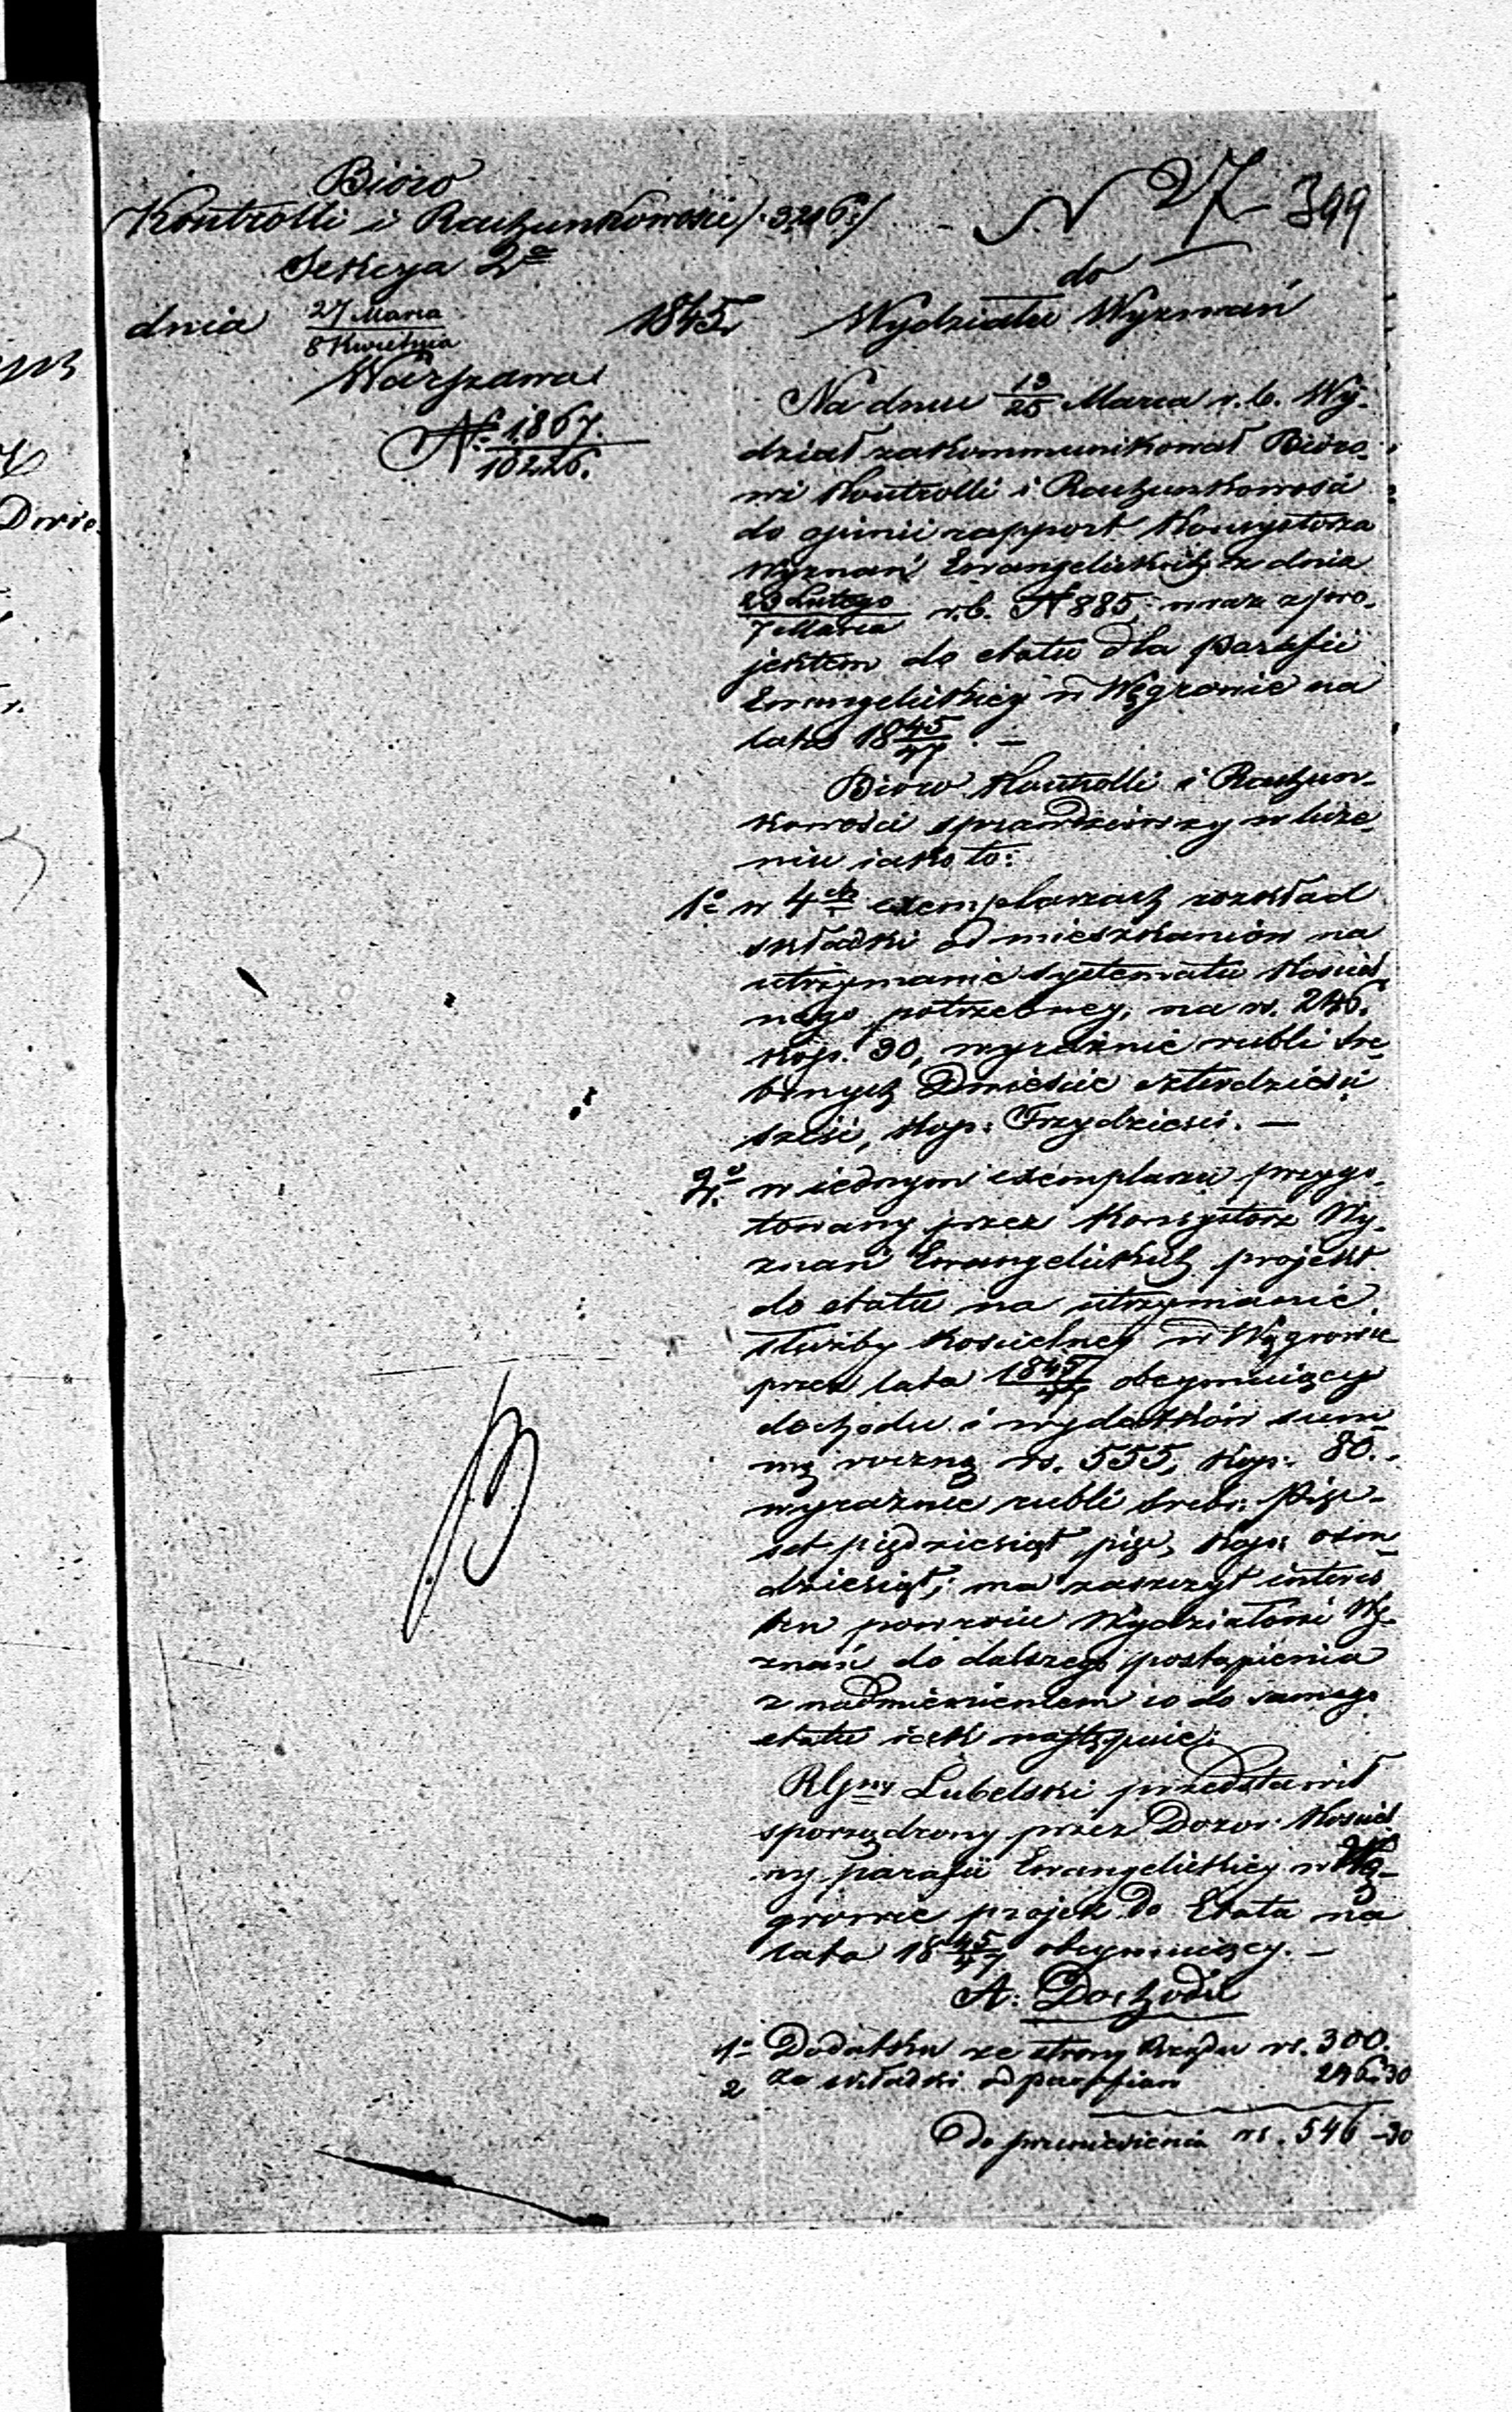 Bióro
Kontrolli i Rachunkowości /: 3246 :/
N 27 399
Sekcya 2a
do
dnia 27 Marca / 8 Kwietnia 1845 Wydziału Wyznań
Warszawa
N. 1867. / 10226.
Na dniu 13/25 Marca r. b. Wy-
dział zakommunikował Bióro-
wi Kontrolli i Rachunkowości
do opinii rapport Konsystorza
Wyznań Ewangelickich z dnia
23 Lutego / 7 Marca r. b. N 885, wraz z pro-
jektem do etatu dla parafii
Ewangelickiey w Węgrowie na
lata 1845/47. —
Bióro Kontrolli i Rachun-
kowości sprawdziwszy w licze-
niu iako to:
1o w 4ch exemplarzach rozkład
składki od mieszkańców na
utrzymanie systematu Kościel-
nego potrzebney, na rs. 246.
kop. 30, wyraźnie rubli sre-
brnych Dwieście czterdzieści
sześć, kop: Trzydzieści. —
2o w iednym exemplarzu przygo-
towany przez Konsystorz Wy-
znań Ewangelickich projekt
do etatu na utrzymanie
służby kościelney w Węgrowie
przez lata 1845/47 obeymuiący
dochodu i wydatków sum-
mę roczną rs. 555, kop. 80.
wyraźnie rubli srebr: Pięć-
set pięćdziesiąt pięć, kop: ośm-
dziesiąt; ma zaszczyt interes
ten powrócić Wydziałowi Wy-
znań do dalszego postąpienia
z nadmienieniem co do samego
etatu iak następuie:
Rząd Lubelski przedstawił
sporządzony przez Dozor Kościel
ny parafii Ewangelickiey w Wę-
growie projekt do Etatu na
lata 1845/47 obeymuiący. —
A. Dochodu
1o Dodatku ze strony Rządu rs. 300.
2 Ze składki od parafian 246. 30
Do przeniesienia rs. 546 - 30